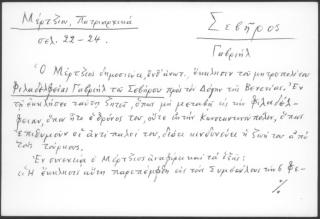 Μέρτζιου, Πατριαρχικά
σελ. 22-24.
Σεβῆρος
Γαβριήλ
Ὁ Μέρτζιος δημοσιεύει, ἔνθ' ἀνωτ. ἔκκλησιν τοῦ μητροπολίτου
Φιλαδελφείας Γαβριήλ τοῦ Σεβήρου πρὸς τὸν Δόγην τῆς Βενετίας. Ἐν
τῇ ἐκκλήσει ταύτῃ ζητεῖ, ὅπως μὴ μεταβῇ εἰς τὴν Φιλαδέλ-
φειαν, ὅπου ἦτο ὁ θρόνος του, οὔτε εἰς τὴν Κωνσταντινούπολιν, ὅπως
ἐπιθυμοῦν οἱ ἀντίπαλοί του, διότι κινδυνεύει ἡ ζωή του ἀπὸ
τοὺς τούρκους.
Ἐν συνεχείᾳ ὁ Μέρτζιος ἀναφέρει καὶ τὰ ἑξῆς:
Ἡ ἔκκλησις αὕτη παρεπέμφθη εἰς τοὺς Συμβούλους τὴν 6 Φε-
%